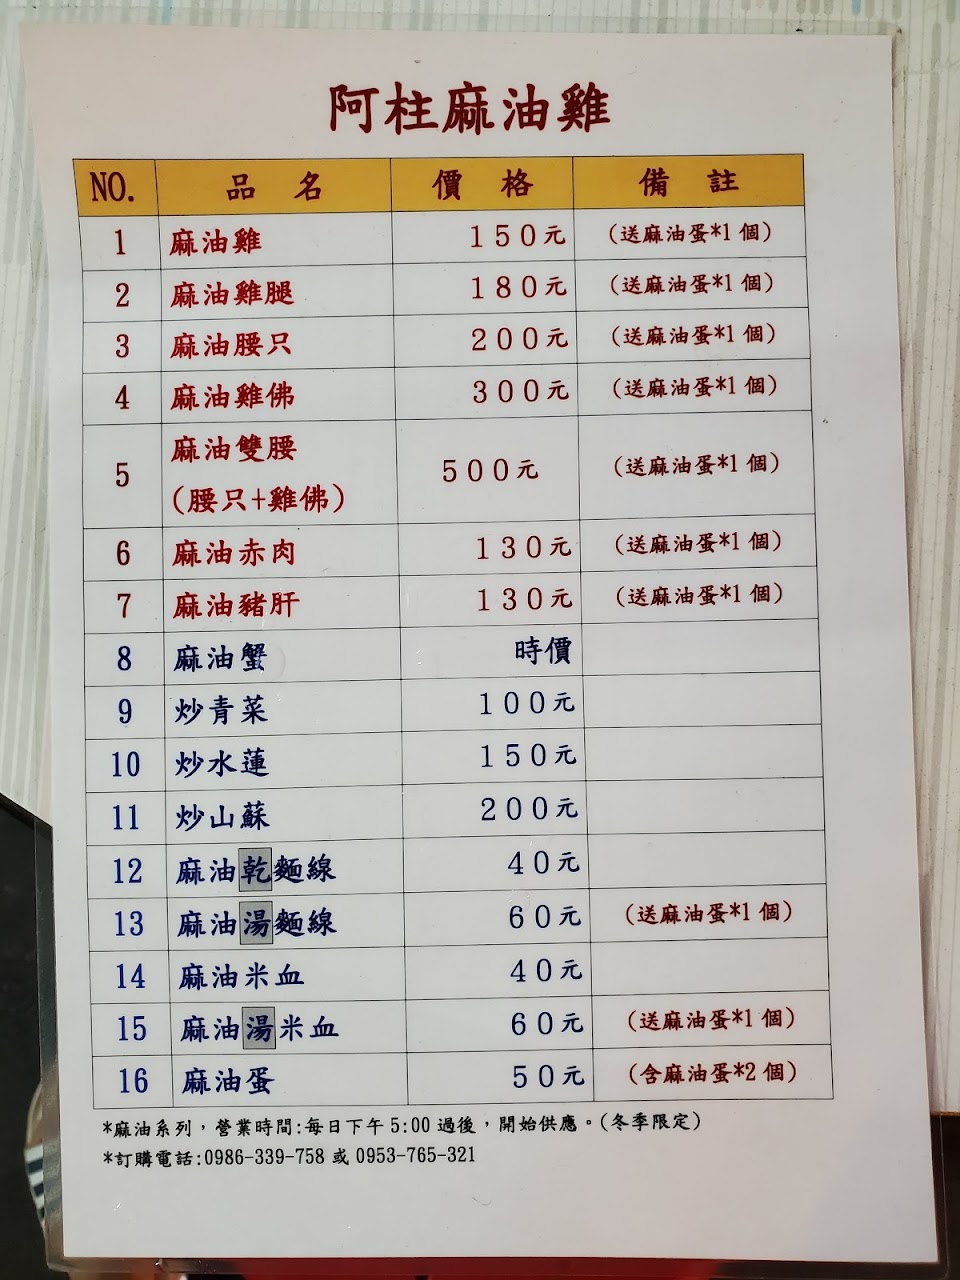 阿柱麻油雞
NO. 品名 價格 備註
1 麻油雞 150元 (送麻油蛋*1個)
2 麻油雞腿 180元 (送麻油蛋*1個)
3 麻油腰只 200元 (送麻油蛋*1個)
4 麻油雞佛 300元 (送麻油蛋*1個)
5 麻油雙腰 500元 (送麻油蛋*1個)
(腰只+雞佛)
6 麻油赤肉 130元 (送麻油蛋*1個)
7 麻油豬肝 130元 (送麻油蛋*1個)
8 麻油蟹 時價
9 炒青菜 100元
10 炒水蓮 150元
11 炒山蘇 200元
12 麻油乾麵線 40元
13 麻油湯麵線 60元 (送麻油蛋*1個)
14 麻油米血 40元
15 麻油湯米血 60元 (送麻油蛋*1個)
16 麻油蛋 50元 (含麻油蛋*2個)
*麻油系列，營業時間:每日下午5:00過後，開始供應。(冬季限定)
*訂購電話:0986-339-758 或 0953-765-321